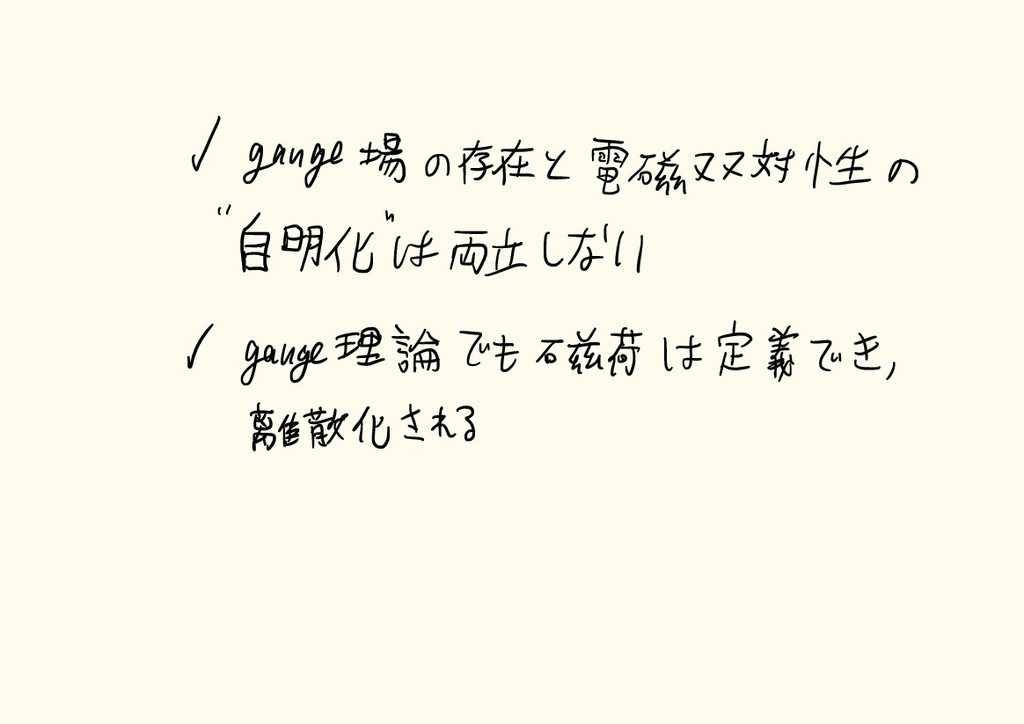 ✓ gauge場の存在と電磁双対性の
"自明化"は両立しない
✓ gauge理論でも磁荷は定義でき,
離散化される